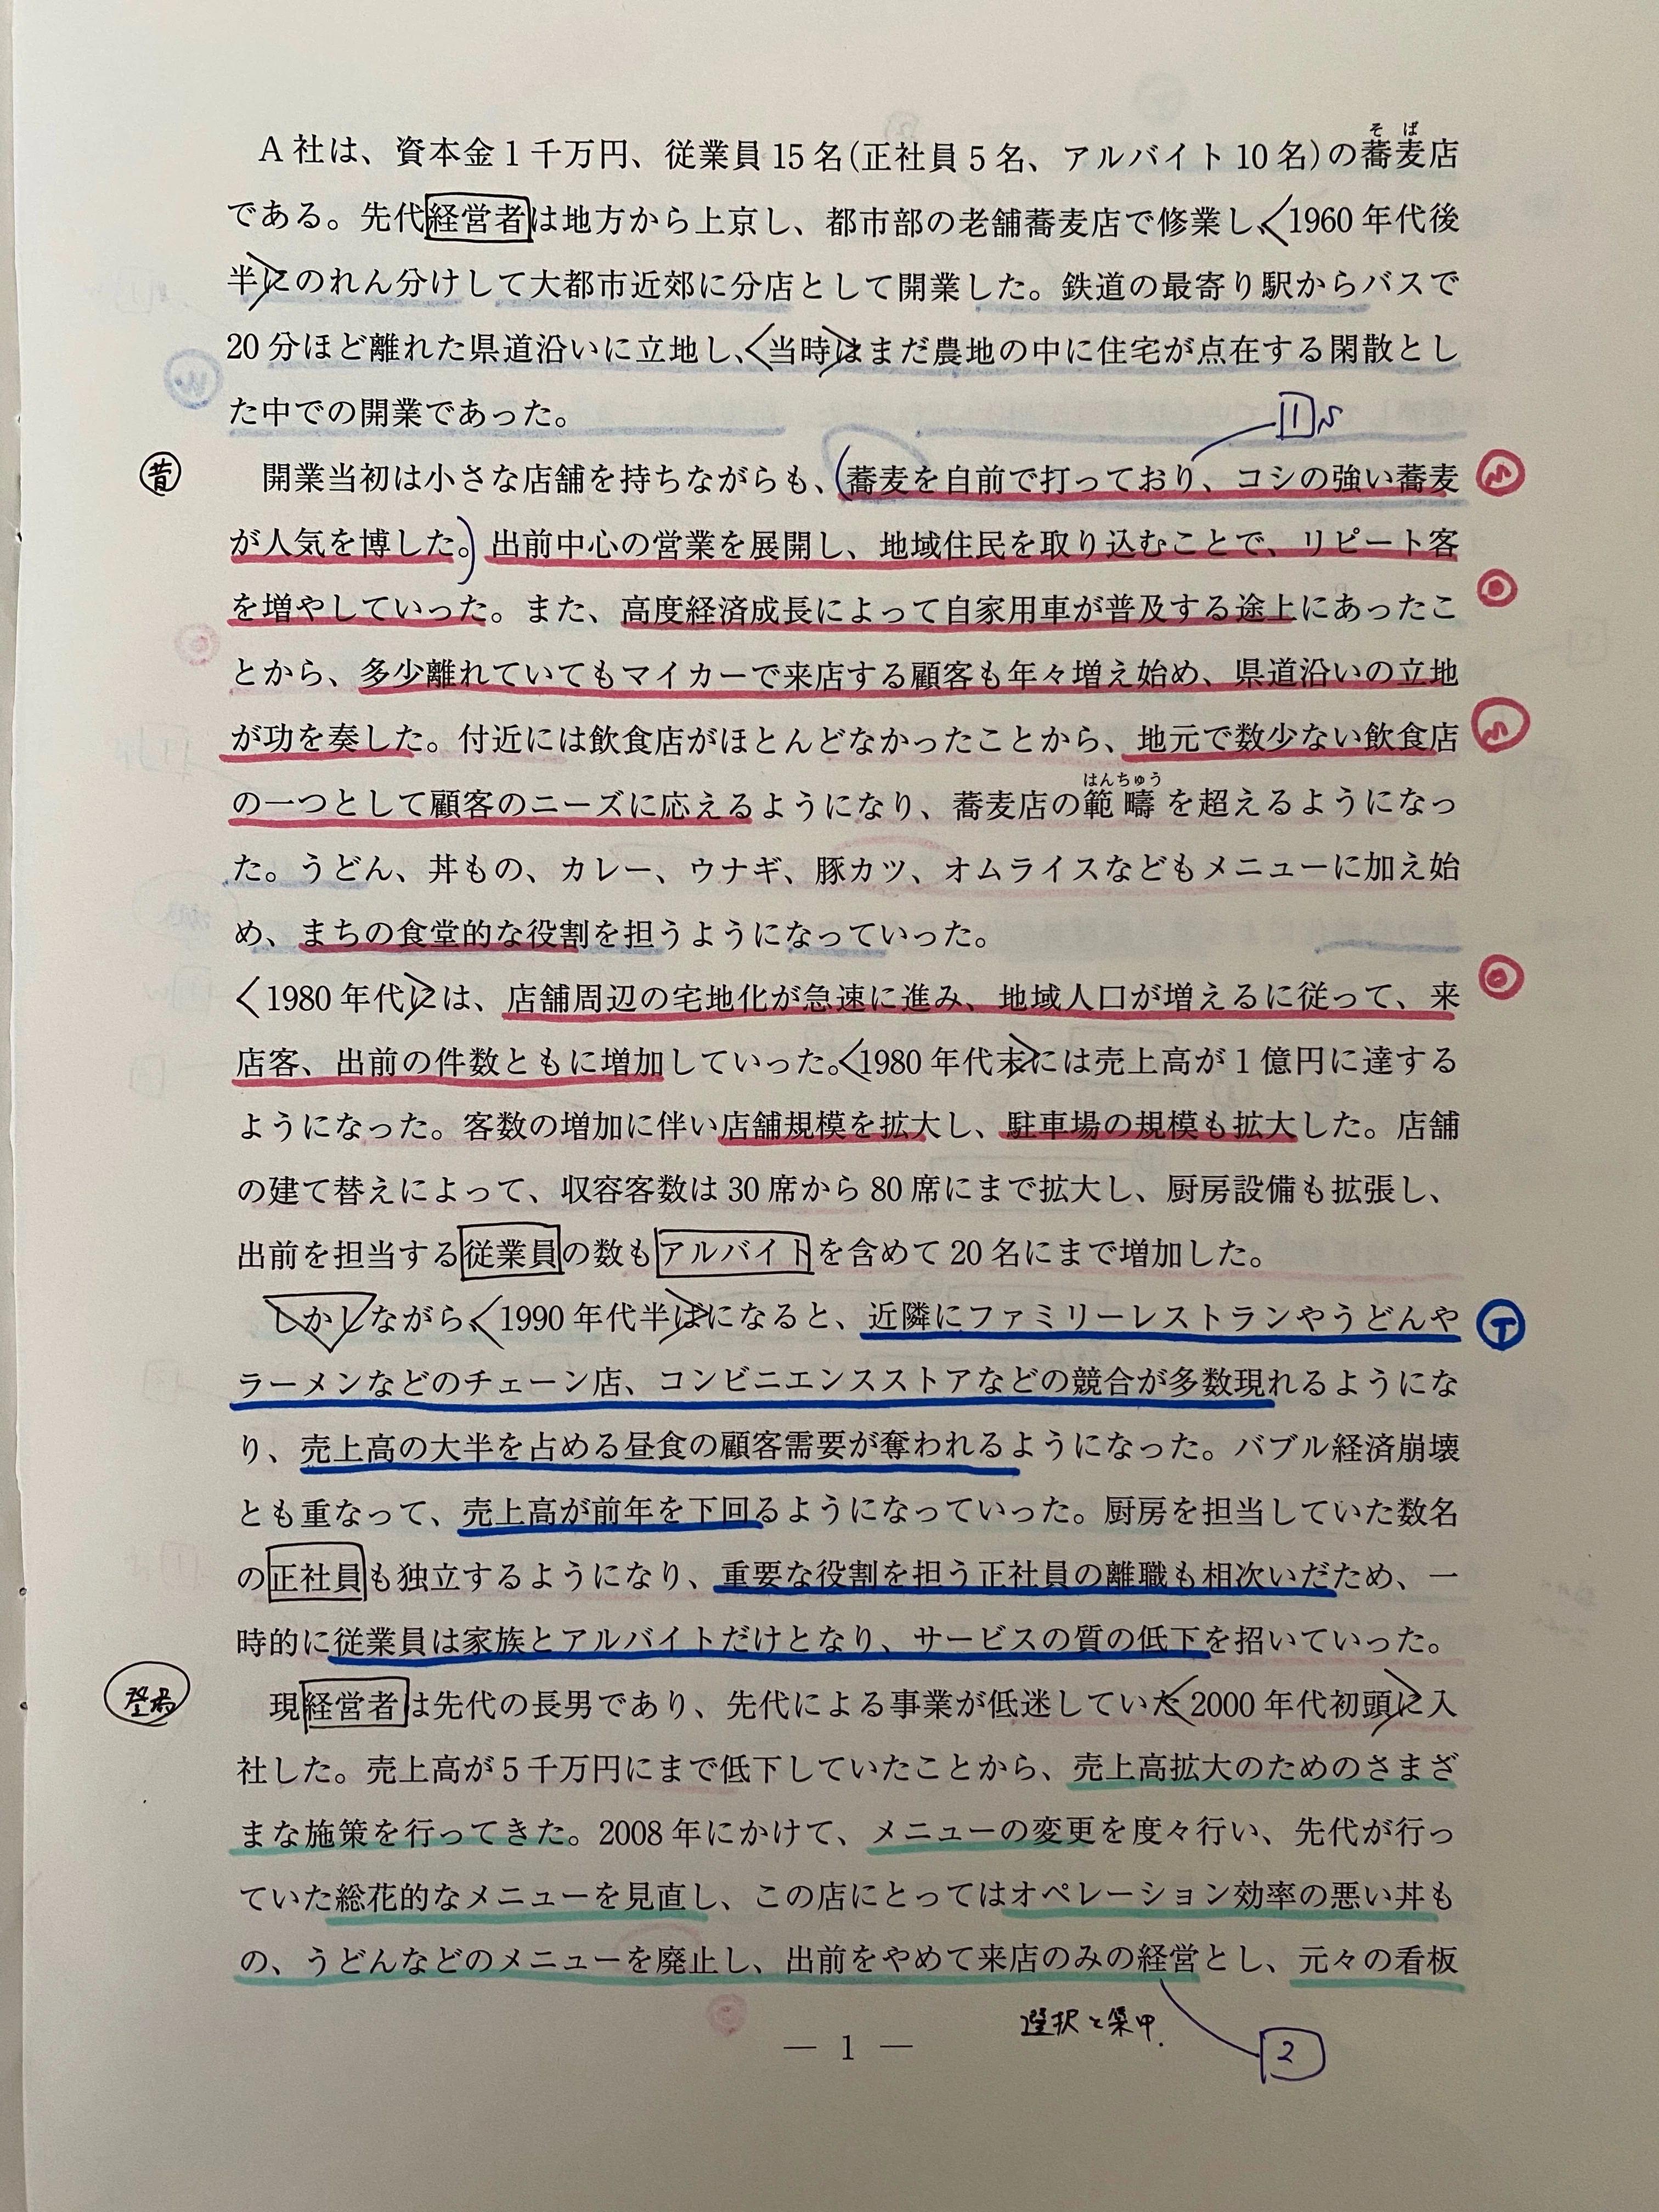 そば
A社は、資本金1千万円、従業員15名(正社員5名、アルバイト10名)の蕎麦店
である。先代経営者は地方から上京し、都市部の老舗蕎麦店で修業し、<1960年代後
半に>のれん分けして大都市近郊に分店として開業した。鉄道の最寄り駅からバスで
20分ほど離れた県道沿いに立地し、<当時は>まだ農地の中に住宅が点在する閑散とし
た中での開業であった。
1 S
昔
開業当初は小さな店舗を持ちながらも、(蕎麦を自前で打っており、コシの強い蕎麦
S
が人気を博した。)出前中心の営業を展開し、地域住民を取り込むことで、リピート客
を増やしていった。また、高度経済成長によって自家用車が普及する途上にあったこ
O
とから、多少離れていてもマイカーで来店する顧客も年々増え始め、県道沿いの立地
が功を奏した。付近には飲食店がほとんどなかったことから、地元で数少ない飲食店
S
はんちゅう
の一つとして顧客のニーズに応えるようになり、蕎麦店の範疇を超えるようになっ
た。うどん、丼もの、カレー、ウナギ、豚カツ、オムライスなどもメニューに加え始
め、まちの食堂的な役割を担うようになっていった。
<1980年代に>は、店舗周辺の宅地化が急速に進み、地域人口が増えるに従って、来
O
店客、出前の件数ともに増加していった。<1980年代末>には売上高が1億円に達する
ようになった。客数の増加に伴い店舗規模を拡大し、駐車場の規模も拡大した。店舗
の建て替えによって、収容客数は30席から80席にまで拡大し、厨房設備も拡張し、
出前を担当する従業員の数もアルバイトを含めて20名にまで増加した。
しかしながら、<1990年代半ば>になると、近隣にファミリーレストランやうどんや
T
ラーメンなどのチェーン店、コンビニエンスストアなどの競合が多数現れるようにな
り、売上高の大半を占める昼食の顧客需要が奪われるようになった。バブル経済崩壊
とも重なって、売上高が前年を下回るようになっていった。厨房を担当していた数名
の正社員も独立するようになり、重要な役割を担う正社員の離職も相次いだため、一
時的に従業員は家族とアルバイトだけとなり、サービスの質の低下を招いていった。
登場
現経営者は先代の長男であり、先代による事業が低迷していた<2000年代初頭に>入
社した。売上高が5千万円にまで低下していたことから、売上高拡大のためのさまざ
まな施策を行ってきた。2008年にかけて、メニューの変更を度々行い、先代が行っ
ていた総花的なメニューを見直し、この店にとってはオペレーション効率の悪い丼も
の、うどんなどのメニューを廃止し、出前をやめて来店のみの経営とし、元々の看板
選択と集中.
2
— 1 —